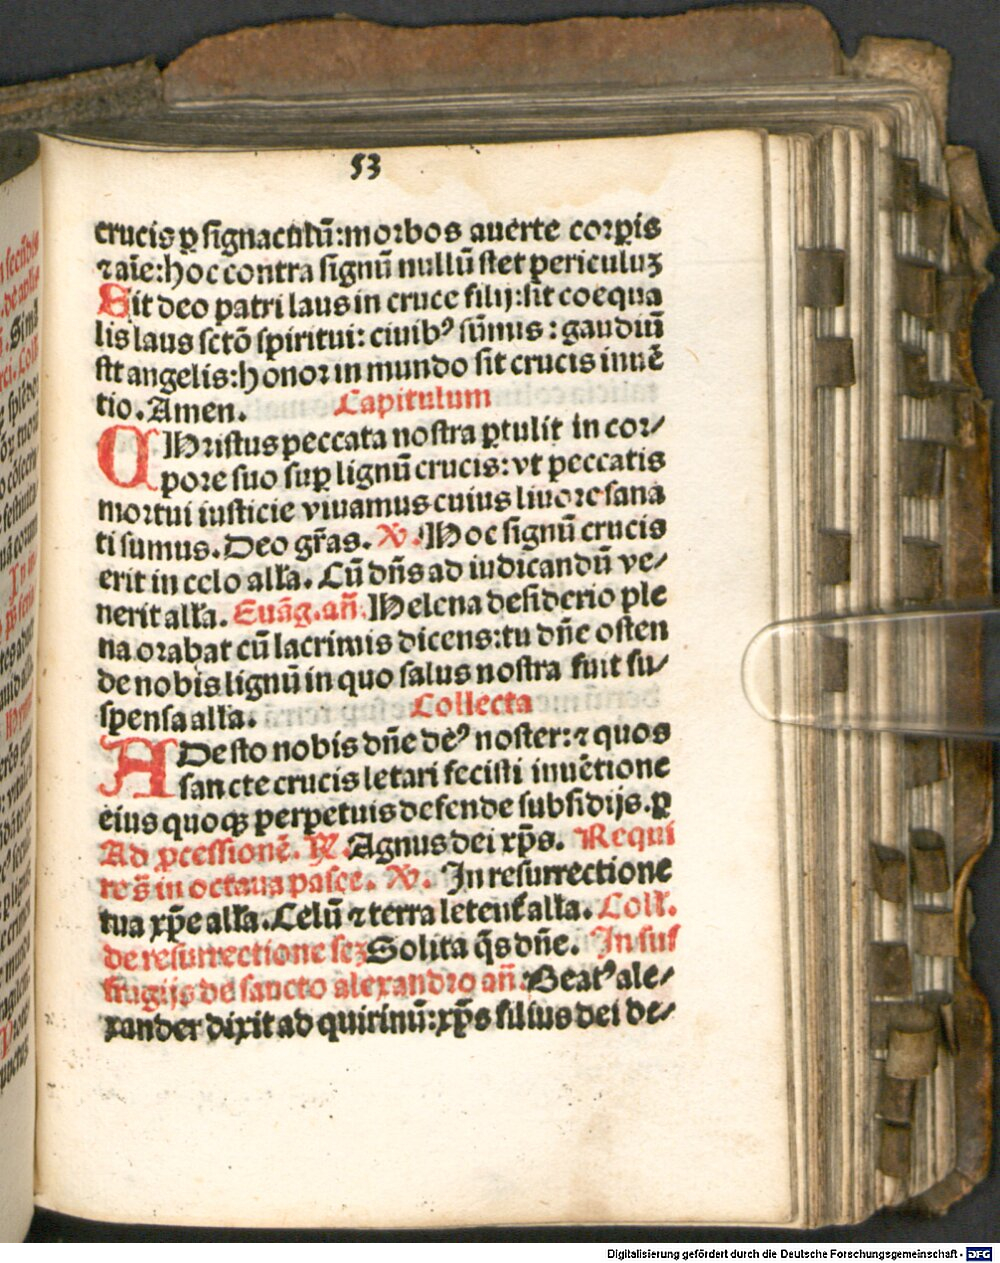 53
crucis ꝑ signaculū:morbos auerte corꝑis
⁊aīe:hoc contra signū nullū stet periculuꝫ
Sit deo patri laus in cruce filij:sit coequa
lis laus sctō spiritui: ciuibꝰ sūmis : gaudiū
sit angelis:honor in mundo sit crucis inuē
tio.Amen. Capitulum
CHristus peccata nostra ꝑtulit in cor/
pore suo suꝑ lignū crucis: vt peccatis
mortui iusticie viuamus cuius liuore sana
ti sumus.Deo gr̄as. ℣. Hoc signū crucis
erit in celo alľa. Cū dn̄s ad iudicandū ve/
nerit alľa. Euāg.an̄. Helena desiderio ple
na orabat cū lacrimis dicens:tu dn̄e osten
de nobis lignū in quo salus nostra fuit su/
spensa alľa. Collecta
ADesto nobis dn̄e deꝰ noster:⁊ quos
sancte crucis letari fecisti inuētione
eius quoqꝫ perpetuis defende subsidijs.ꝑ
Ad ꝓcessionē. ℟. Agnus dei xp̄s. Requi
ro s̄ in octaua pasce. ℣. In resurrectione
tua xp̄e alľa.Celū ⁊ terra letent̄ alľa. Coll̄.
de resurrectione seꝫ Solita q̄s dn̄e. In suf
fragijs de sancto alexandro an̄. Beatꝰ ale/
xander dixit ad quirinū:xp̄s filius dei de/
Digitalisierung gefördert durch die Deutsche Forschungsgemeinschaft - DFG